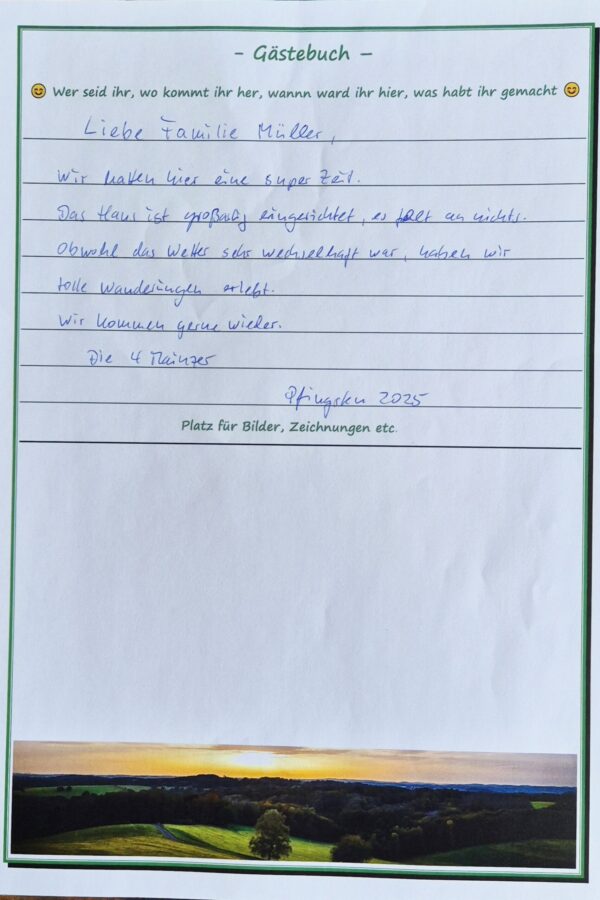 - Gästebuch -
Wer seid ihr, wo kommt ihr her, wannn ward ihr hier, was habt ihr gemacht
Liebe Familie Müller,
Wir hatten hier eine super Zeit.
Das Haus ist großartig eingerichtet, es fehlt an nichts.
Obwohl das Wetter sehr wechselhaft war, haben wir
tolle Wanderungen erlebt.
Wir kommen gerne wieder.
Die 4 Mainzer
Pfingsten 2025
Platz für Bilder, Zeichnungen etc.